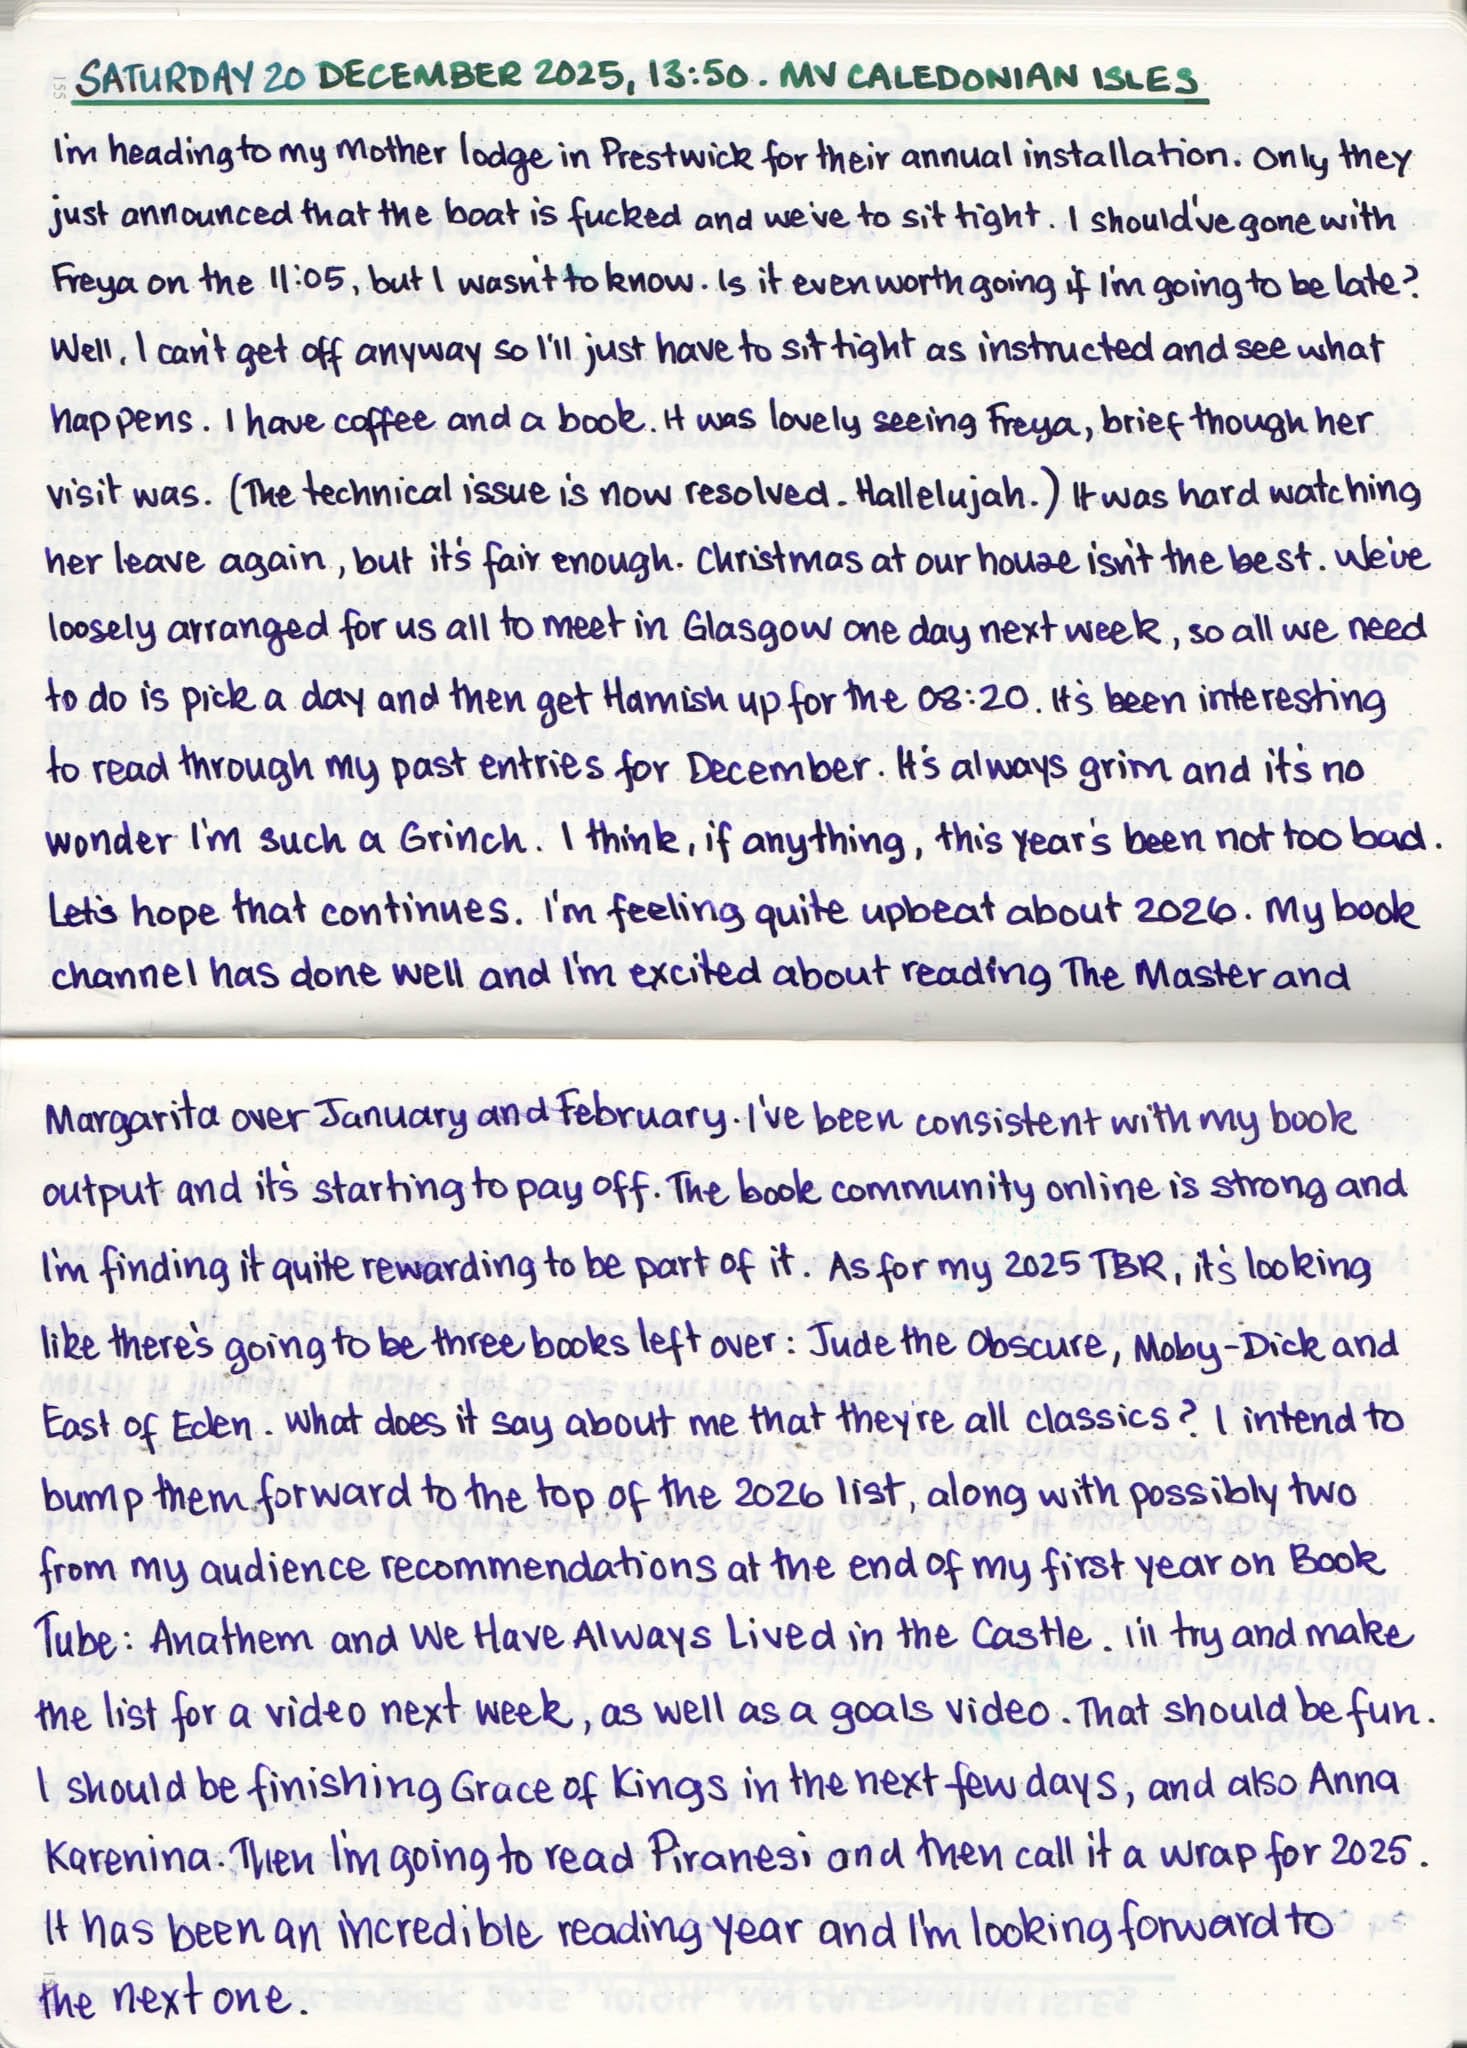 SATURDAY 20 DECEMBER 2025, 13:50. MV CALEDONIAN ISLES
I'm heading to my Mother lodge in Prestwick for their annual installation. Only they
just announced that the boat is fucked and we've to sit tight. I should've gone with
Freya on the 11:05, but I wasn't to know. Is it even worth going if I'm going to be late?
Well, I can't get off anyway so I'll just have to sit tight as instructed and see what
happens. I have coffee and a book. It was lovely seeing Freya, brief though her
visit was. (The technical issue is now resolved. Hallelujah.) It was hard watching
her leave again, but it's fair enough. Christmas at our house isn't the best. We've
loosely arranged for us all to meet in Glasgow one day next week, so all we need
to do is pick a day and then get Hamish up for the 08:20. It's been interesting
to read through my past entries for December. It's always grim and it's no
wonder I'm such a Grinch. I think, if anything, this year's been not too bad.
Let's hope that continues. I'm feeling quite upbeat about 2026. My book
channel has done well and I'm excited about reading The Master and
Margarita over January and February. I've been consistent with my book
output and it's starting to pay off. The book community online is strong and
I'm finding it quite rewarding to be part of it. As for my 2025 TBR, it's looking
like there's going to be three books left over: Jude the Obscure, Moby-Dick and
East of Eden. What does it say about me that they're all classics? I intend to
bump them forward to the top of the 2026 list, along with possibly two
from my audience recommendations at the end of my first year on Book
Tube: Anathem and We Have Always Lived in the Castle. I'll try and make
the list for a video next week, as well as a goals video. That should be fun.
I should be finishing Grace of Kings in the next few days, and also Anna
Karenina. Then I'm going to read Piranesi and then call it a wrap for 2025.
It has been an incredible reading year and I'm looking forward to
the next one.